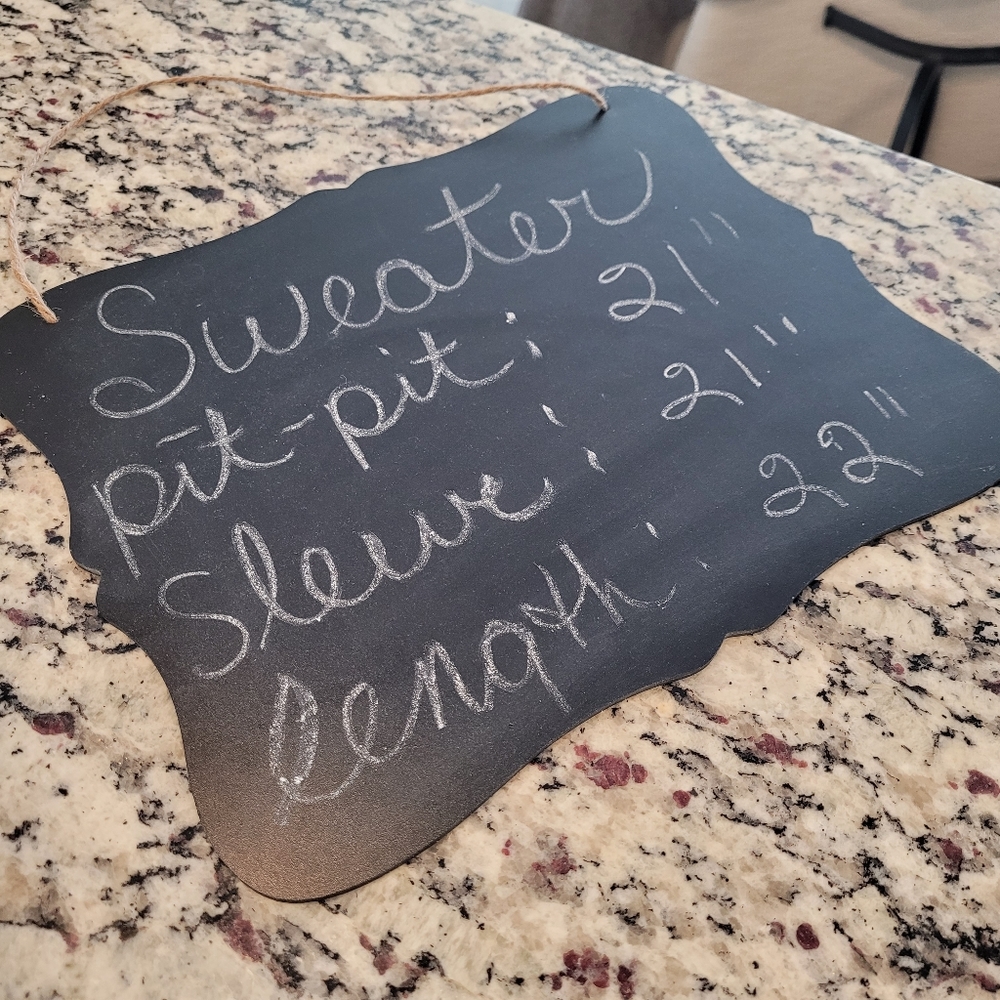 Sweater
pit-pit: 21"
Sleeve: 21"
length: 22"